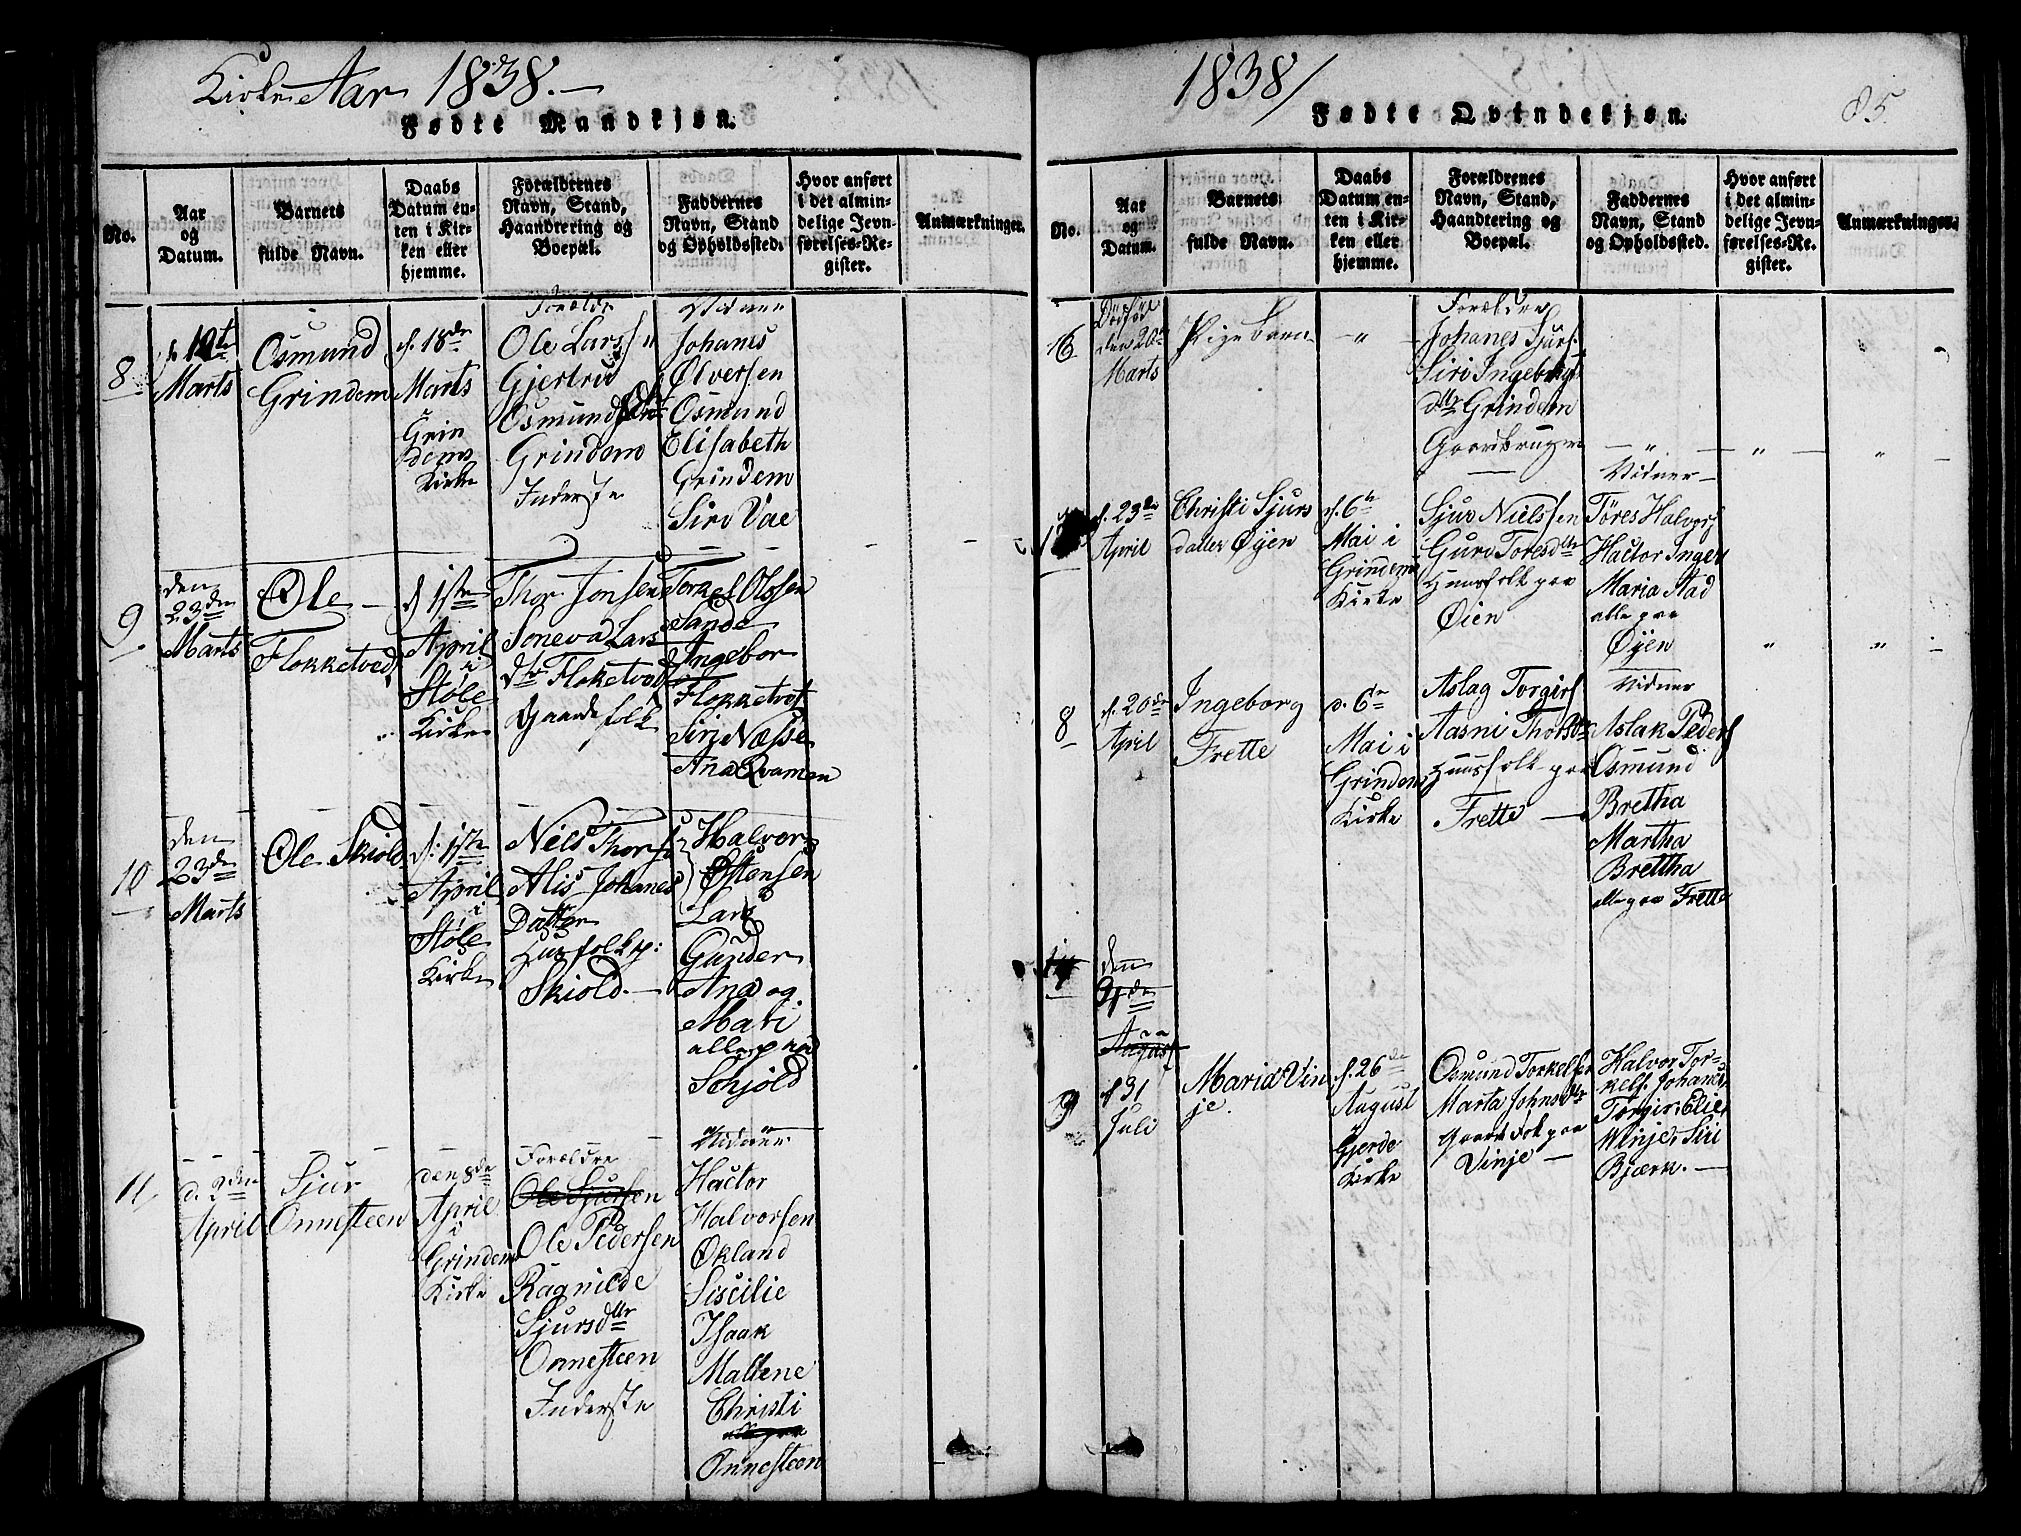 Kirke Aar 1838.
Fødte Mandkjøn.
No.
Aar
og
Datum.
Barnets
fulde Navn.
Daabs
Datum en-
ten i Kir-
ken eller
hjemme.
Forældrenes
Navn, Stand,
Haandtering og
Boepæl.
Faddernes
Navn, Stand
og Opholdssted.
Hvor anført
i det almin-
delige Jevn-
førelses-Re-
gister.
Anmærkninger.
8
d. 12te
Marts
Osmund
Grindem
d. 18de
Marts
Grin
dems
Kirke
Forældre
Ole Larss
Gjertrud
Osmundsdtr
Grindem
Inderste
Vidner
Johanes
Ølversen
Osmund
Elisabeth
Grindem
Siri Vae
9
den
23de
Marts
Ole
Flokketved
d 1ste
April
i
Støle
Kirke
Thor Jonsen
Soneva Lars
dtr Floketved
Gaardfolk
Torkel Olssen
Sande
Ingebor
Flokketvet
Siri Næsse
Ana Qvamen
10
den
23de
Marts
Ole Skiold
d: 1ste
April
i
Støle
Kirke
Niels Thors
Alis Johanes
Datter
Husfolk p:
Skiold
Halvor
Østensen
Lars
Gunder
Ana og
Mari
alle paa
Schjold
11
d. 2den
April
Sjur
Onnesteen
den 8de
April
i
Grindems
Kirke
Forældre
Ole Sjursen
Ole Pedersen
Ragnilde
Sjursdttr
Onnesteen
Inderste
Vidner
Hactor
Halvorsen
Økland
Siscilie
Isaak
Mallene
Christi
alle paa
Onnesteen
1838
Fødte Qvindekjøn.
85
No.
Aar
og
Datum.
Barnets
fulde Navn.
Daabs
Datum en-
ten i Kir-
ken eller
hjemme.
Forældrenes
Navn, Stand,
Haandtering og
Boepæl.
Faddernes
Navn, Stand
og Opholdssted.
Hvor anført
i det almin-
delige Jevn-
førelses-Re-
gister.
Anmærkninger.
6
Dødfød
den 20de
Marts
Pigebarn
Forældre
Johanes Sjurs.
Siri Ingebrigt
dttr Grindem
Gaardbruger
d. 23de
April
Christi Sjurs
datter Øyen
d. 6te
Mai i
Grindems
Kirke
Sjur Nielssen
Guri Toresdttr
Huusfolk paa
Øien
Vidner
Tøres Halvors
Hactor Inger
Maria Aad
alle paa
Øyen
8
d. 20de
April
Ingeborg
Frette
d. 6te
Mai i
Grindem
Kirke
Aslag Torgirs
Aasni Thorsdtr
Huusfolk paa
Frette
Vidner
Aslak Peders
Osmund
Bretha
Martha
Brettha
alle paa Frette
den
31de
August
9
d 31
Juli
Maria Vin
je.
d. 26de
August
Gjerde
Kirke
Osmund Torkelsen
Marta Johnsdtr
Gaardfolk paa
Vinje
Halvor Tor-
kels. Johanes,
Torgir, Elie,
Winje, Siri
Bjærk.